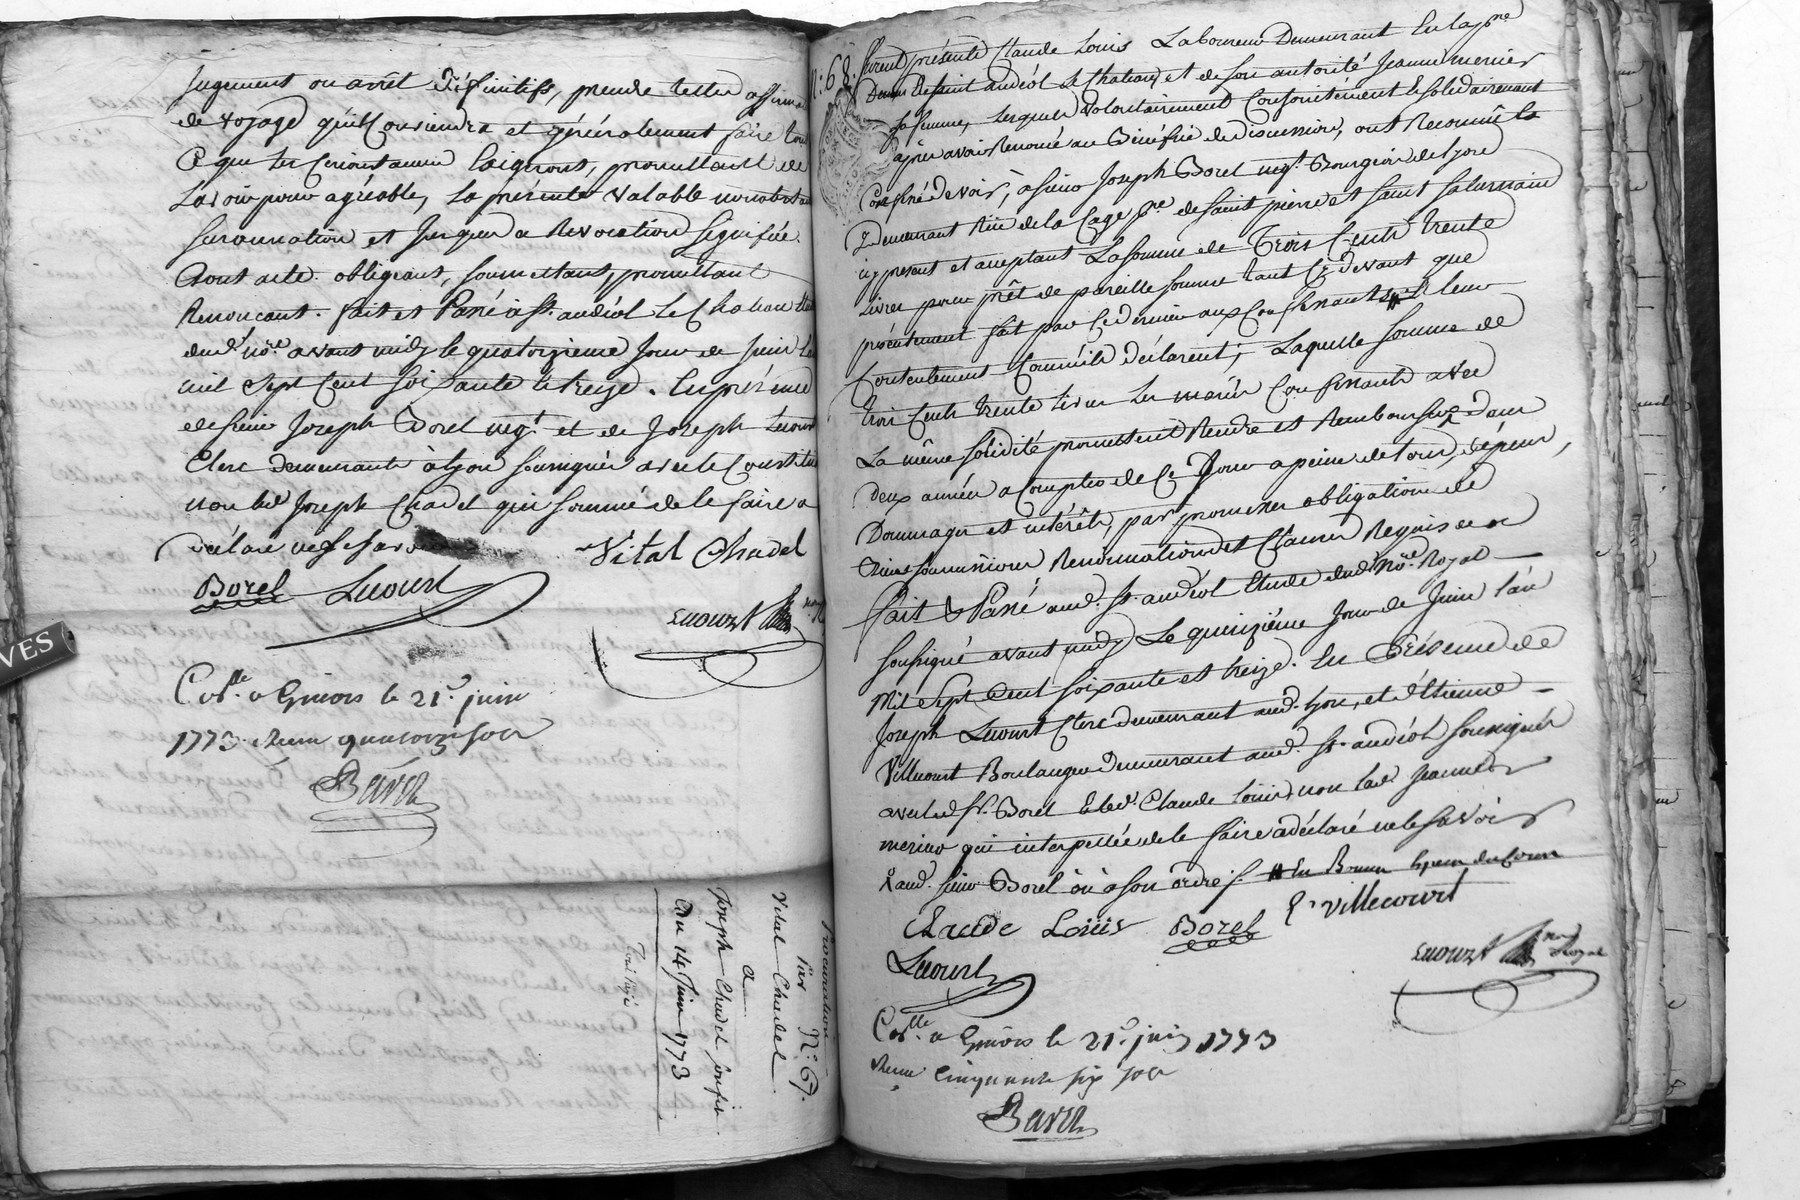 Jugement ou arrêt Définitifs, prendre lettre affirma
de voyage qu'il Conviendra et généralement faire tout
Ce que les Circonstances Exigeront, promettant de
L'avoir pour agréable, La présente valable nonobstant
surannation et Jusques a Revocation signifiée.
Dont acte. obligeant, soumettant, promettant
Renonçant. fait et Passé à St. andéol Le Chateau
dud. nore. avant midy le quatorzieme Jour de Juin
mil Sept Cent soixante et treize. En présence
de sieur Joseph Borel negt. et de Joseph Lucourt
Clerc demeurants à Lyon soussignés avec le Constituant
non led. Joseph Chadel qui sommé de le faire a
déclaré ne le savoir
Vital Chadel
Borel Lucourt
Lucourt
Colle. a Givors le 21e. juin
1773. Reçu quatorze sols
Barra
Procuration N.º 67.
Par
Vital Chadel
a
Joseph Chadel son fils
Du 14 Juin 1773
N.º 68.
furent présents Claude Louis Laboureur Demeurant En la psse
De Saint andéol Le Chateau, et de son autorité Jeanne mercier
sa femme, Lesquels volontairement Conjointement Et solidairement
après avoir Renoncé au Bénéfice de discussion, ont Reconnu Et
Confessé devoir, a sieur Joseph Borel negt. Bourgeois de Lyon
y Demeurant Rue de la Cage psse. de Saint pierre et saint saturnin
icy présent et acceptant La somme de Trois Cents trente
Livres pour prêt de pareille somme tant Cy devant que
présentement fait par Ce dernier aux Confessants # à leur
Contentement Comm'ils déclarent; Laquelle somme de
trois Cents trente Livres Les mariés Confessants avec
La même solidité promettent Rendre et Rembourser X Dans
Deux années a Compter de Ce Jour a peine de tous, dépens,
Dommages et intérêts, par promesses obligations de
Biens soumissions Renonciations et Clauses Requises
fait & Passé aud. St. andéol Etude dud. nore. Royal
soussigné avant midy Le quinzième Jour de Juin L'an
Mil Sept Cent soixante et treize. En Présence de
Joseph Lucourt Clerc demeurant aud. Lyon, et d'Etienne
Villecourt Boulanger demeurant aud. St. andéol soussignés
avec led. sr. Borel Et led. Claude Louis, non lad. Jeanne
mercier qui interpellée de le faire a déclaré ne le savoir
X aud. sieur Borel ou à son ordre. # En Bonnes Espèces du Cours
Claude Louis Borel E. villecourt
Lucourt
Lucourt nore Royal
Colle. a Givors le 21e. juin 1773
Reçu Cinquante six sols
Barra
VES